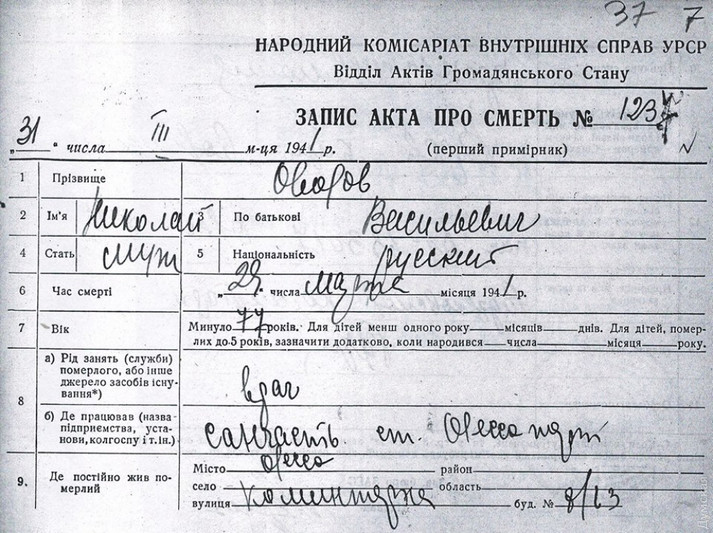 37 7
НАРОДНИЙ КОМІСАРІАТ ВНУТРІШНІХ СПРАВ УРСР
Відділ Актів Громадянського Стану
ЗАПИС АКТА ПРО СМЕРТЬ № 1237
„31" числа III м-ця 1941 р. (перший примірник)
1 Прізвище
2 Ім'я Николай 3 По батькові Васильевич
4 Стать муж 5 Національність русский
6 Час смерті „29" числа марта місяця 1941 р.
7 Вік Минуло 77 років. Для дітей менш одного року місяців днів. Для дітей, помер-
лих до 5 років, зазначити додатково, коли народився числа місяця року.
8 а) Рід занять (служби) померлого, або інше джерело засобів існу-вання*) врач
б) Де працював (назва підприємства, уста-нови, колгоспу і т. ін.) санчасть ст. Одесса порт
9. Де постійно жив по-мерлий Місто Одесса район
село область
вулиця Коминтерна буд. № 8/13